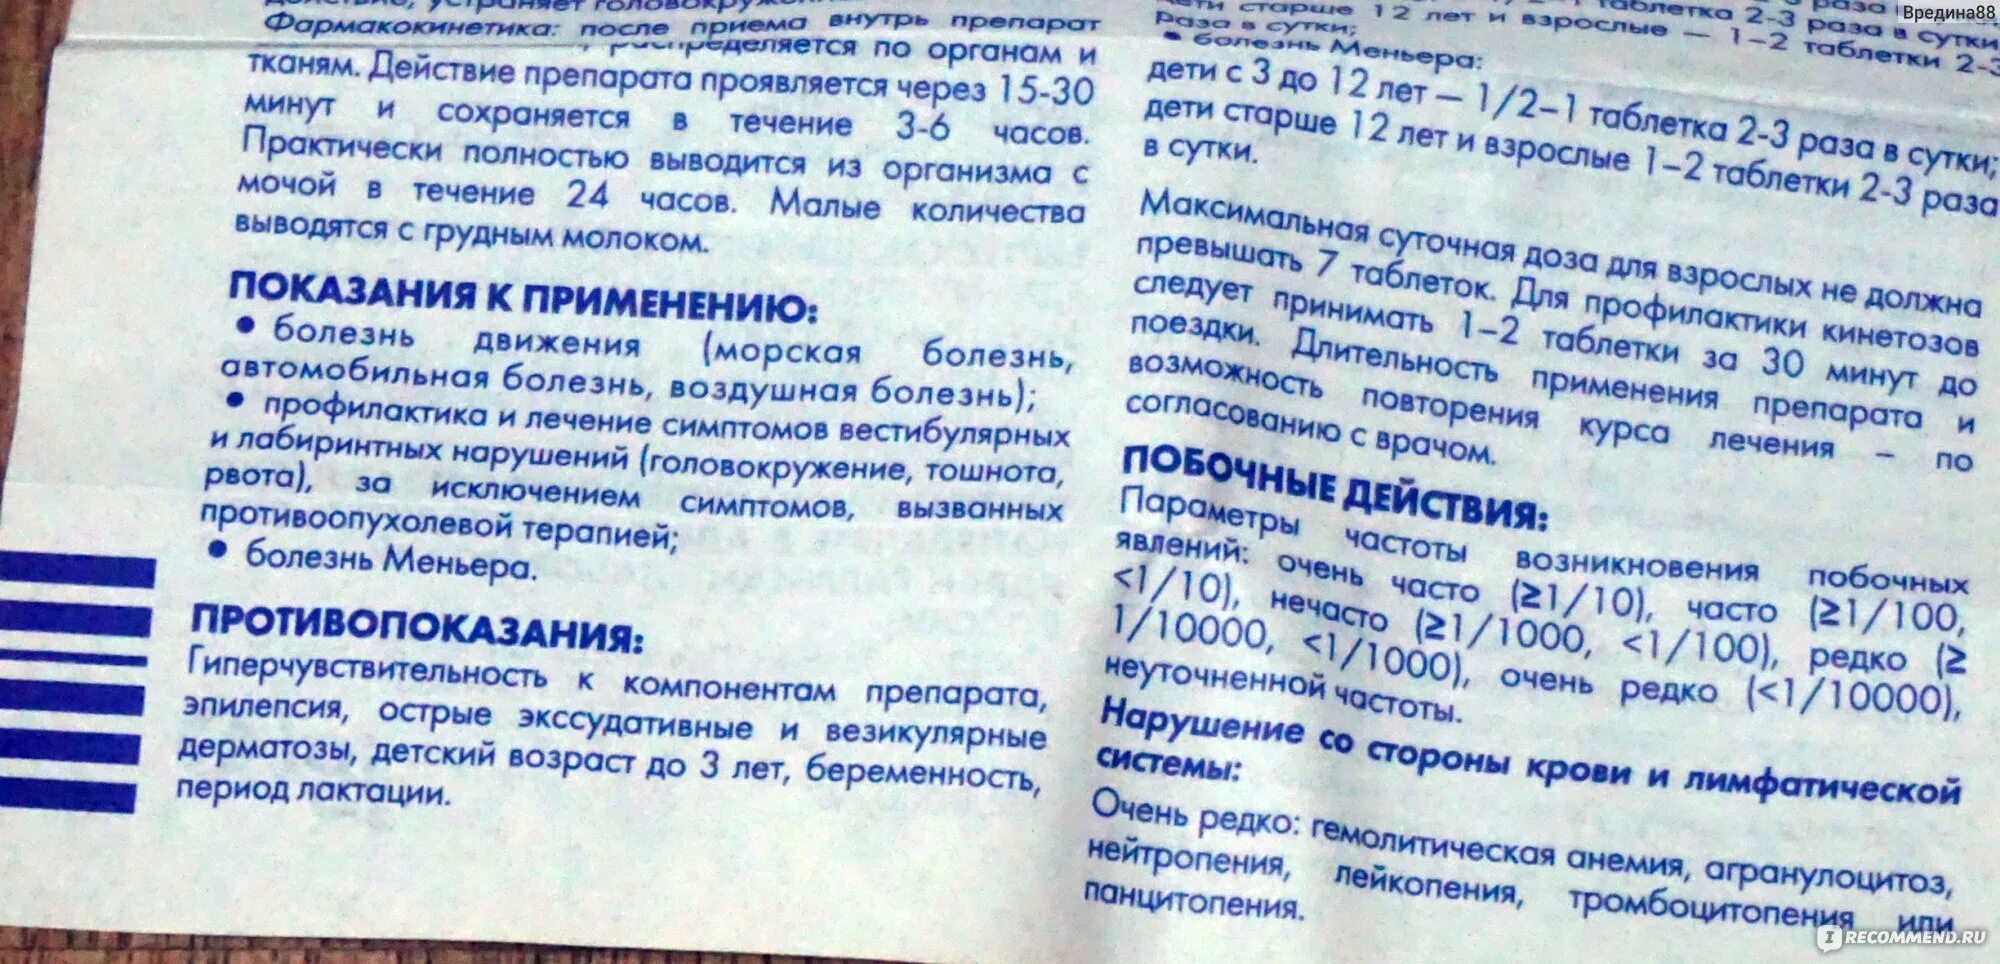 устраняет
Фармакокинетика: после приема внутрь препарат
распределяется по органам и
тканям. Действие препарата проявляется через 15-30
минут и сохраняется в течение 3-6 часов.
Практически полностью выводится из организма с
мочой в течение 24 часов. Малые количества
выводятся с грудным молоком.
ПОКАЗАНИЯ К ПРИМЕНЕНИЮ:
• болезнь движения (морская болезнь,
автомобильная болезнь, воздушная болезнь);
• профилактика и лечение симптомов вестибулярных
и лабиринтных нарушений (головокружение, тошнота,
рвота), за исключением симптомов, вызванных
противоопухолевой терапией;
• болезнь Меньера.
ПРОТИВОПОКАЗАНИЯ:
Гиперчувствительность к компонентам препарата,
эпилепсия, острые экссудативные и везикулярные
дерматозы, детский возраст до 3 лет, беременность,
период лактации.
таблетка 2-3 раза
дети старше 12 лет и взрослые — 1-2 таблетки 2-3
раза в сутки;
• болезнь Меньера:
дети с 3 до 12 лет — 1/2-1 таблетка 2-3 раза в сутки;
дети старше 12 лет и взрослые 1-2 таблетки 2-3 раза
в сутки.
Максимальная суточная доза для взрослых не должна
превышать 7 таблеток. Для профилактики кинетозов
следует принимать 1-2 таблетки за 30 минут до
поездки. Длительность применения препарата и
возможность повторения курса лечения - по
согласованию с врачом.
ПОБОЧНЫЕ ДЕЙСТВИЯ:
Параметры частоты возникновения побочных
явлений: очень часто (≥1/10), часто (≥1/100,
<1/10), нечасто (≥1/1000, <1/100), редко (≥
1/10000, <1/1000), очень редко (<1/10000),
неуточненной частоты.
Нарушение со стороны крови и лимфатической
системы:
Очень редко: гемолитическая анемия, агранулоцитоз,
нейтропения, лейкопения, тромбоцитопения или
панцитопения.
Вредина88
IRECOMMEND.RU